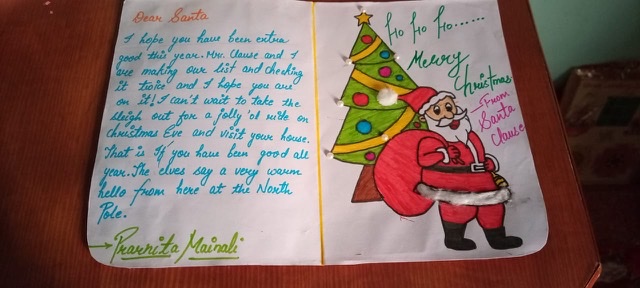 Dear Santa
I hope you have been extra
good this year. Mr. Clause and I
are making our list and cheking
it twice and I hope you are
on it! I can't wait to take the
sleigh out for a jolly 'ol ride on
Christmas Eve and visit your house.
That is If you have been good all
year. The elves say a very warm
hello from here at the North
Pole.
Prarnita Mainali
Ho Ho Ho......
Merry
Christmas
From
Santa
Clause